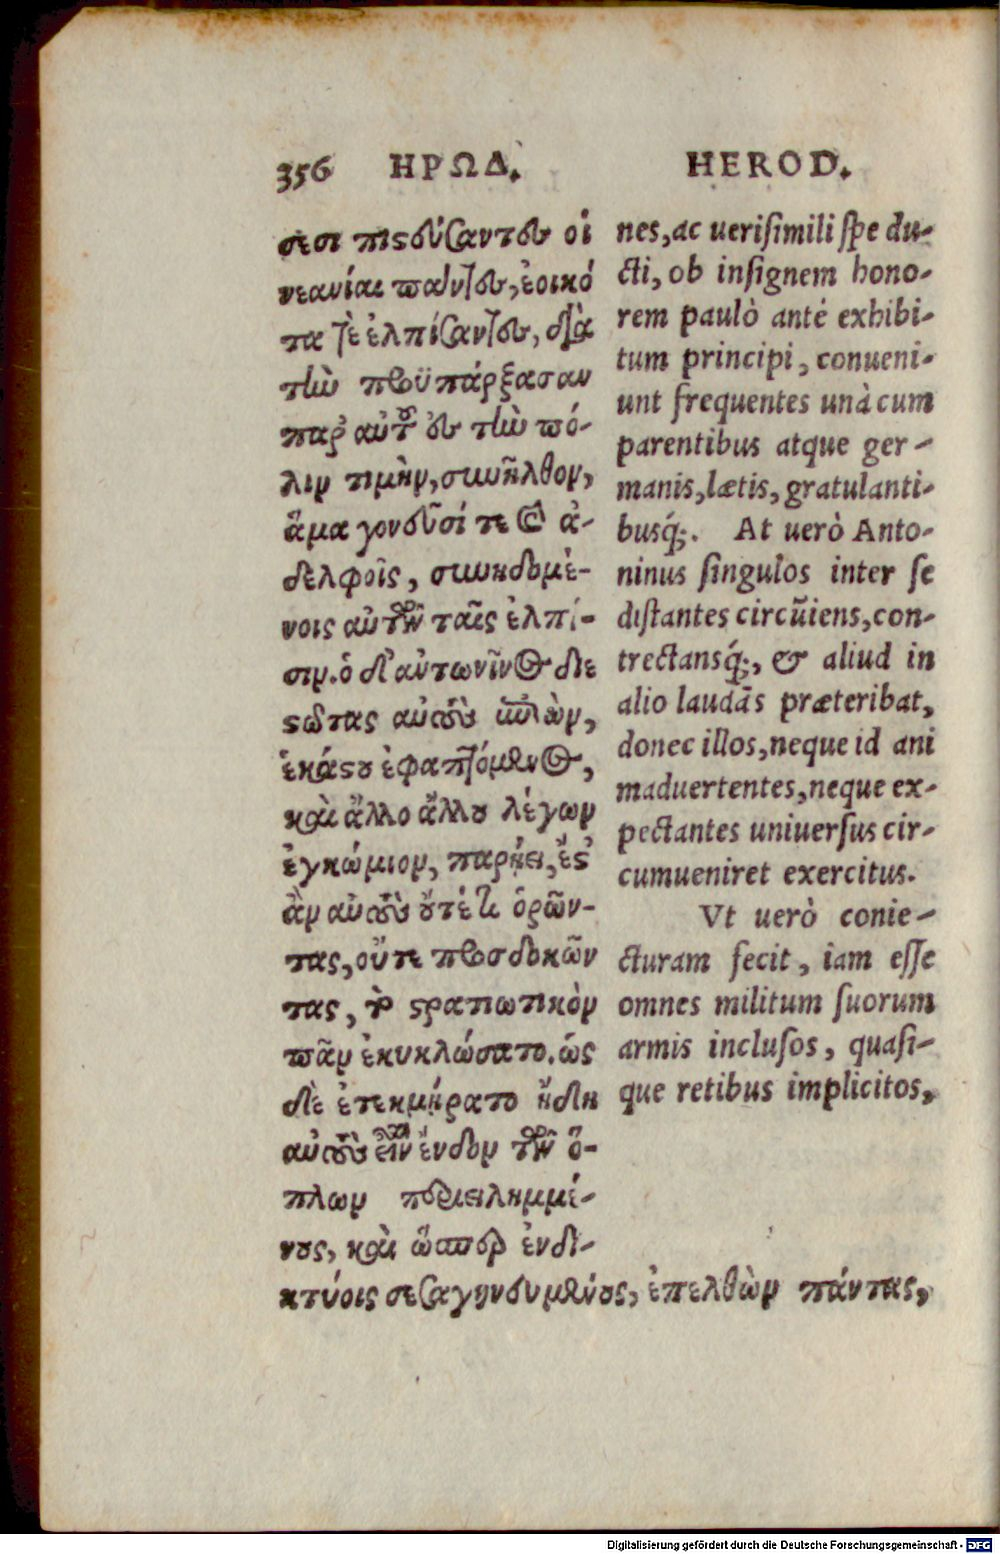 356 ΗΡΩΔ.
σεσι πιστεύσαντες οἱ
νεανίαι πάντες, ἐοικό
τα τε ἐλπίσαντες, διὰ
τὴν προϋπάρξασαν
παρ' αὐτοῦ ἐς τὴν πό-
λιν τιμὴν, συνῆλθον,
ἅμα γονεῦσί τε καὶ ἀ-
δελφοῖς, συνηδομέ-
νοις αὐτῶν ταῖς ἐλπί-
σιν. ὁ δ' ἀντωνῖνος διε
στῶτας αὐτοὺς ἐπελθὼν,
ἑκάστου ἐφαπτόμενος,
καὶ ἄλλο ἄλλου λέγων
ἐγκώμιον, παρῄει, ἔστ'
ἂν αὐτοὺς οὔτέ τι ὁρῶν-
τας, οὔτε προσδοκῶν
τας, τὸ στρατιωτικὸν
πᾶν ἐκυκλώσατο. ὡς
δὲ ἐτεκμήρατο ἤδη
αὐτοὺς εἶναι ἔνδον τῶν ὅ-
πλων περιειλημμέ-
νους, καὶ ὥσπερ ἐν δι-
κτύοις σεσαγηνευμένους, ἐπελθὼν πάντας,
HEROD.
nes, ac uerisimili spe du-
cti, ob insignem hono-
rem paulò antè exhibi-
tum principi, conueni-
unt frequentes unà cum
parentibus atque ger-
manis, lætis, gratulanti-
busq́;. At uerò Anto-
ninus singulos inter se
distantes circũiens, con-
trectansq́;, & aliud in
alio laudãs præteribat,
donec illos, neque id ani
maduertentes, neque ex-
pectantes uniuersus cir-
cumueniret exercitus.
Vt uerò conie-
cturam fecit, iam esse
omnes militum suorum
armis inclusos, quasi-
que retibus implicitos,
Digitalisierung gefördert durch die Deutsche Forschungsgemeinschaft - DFG